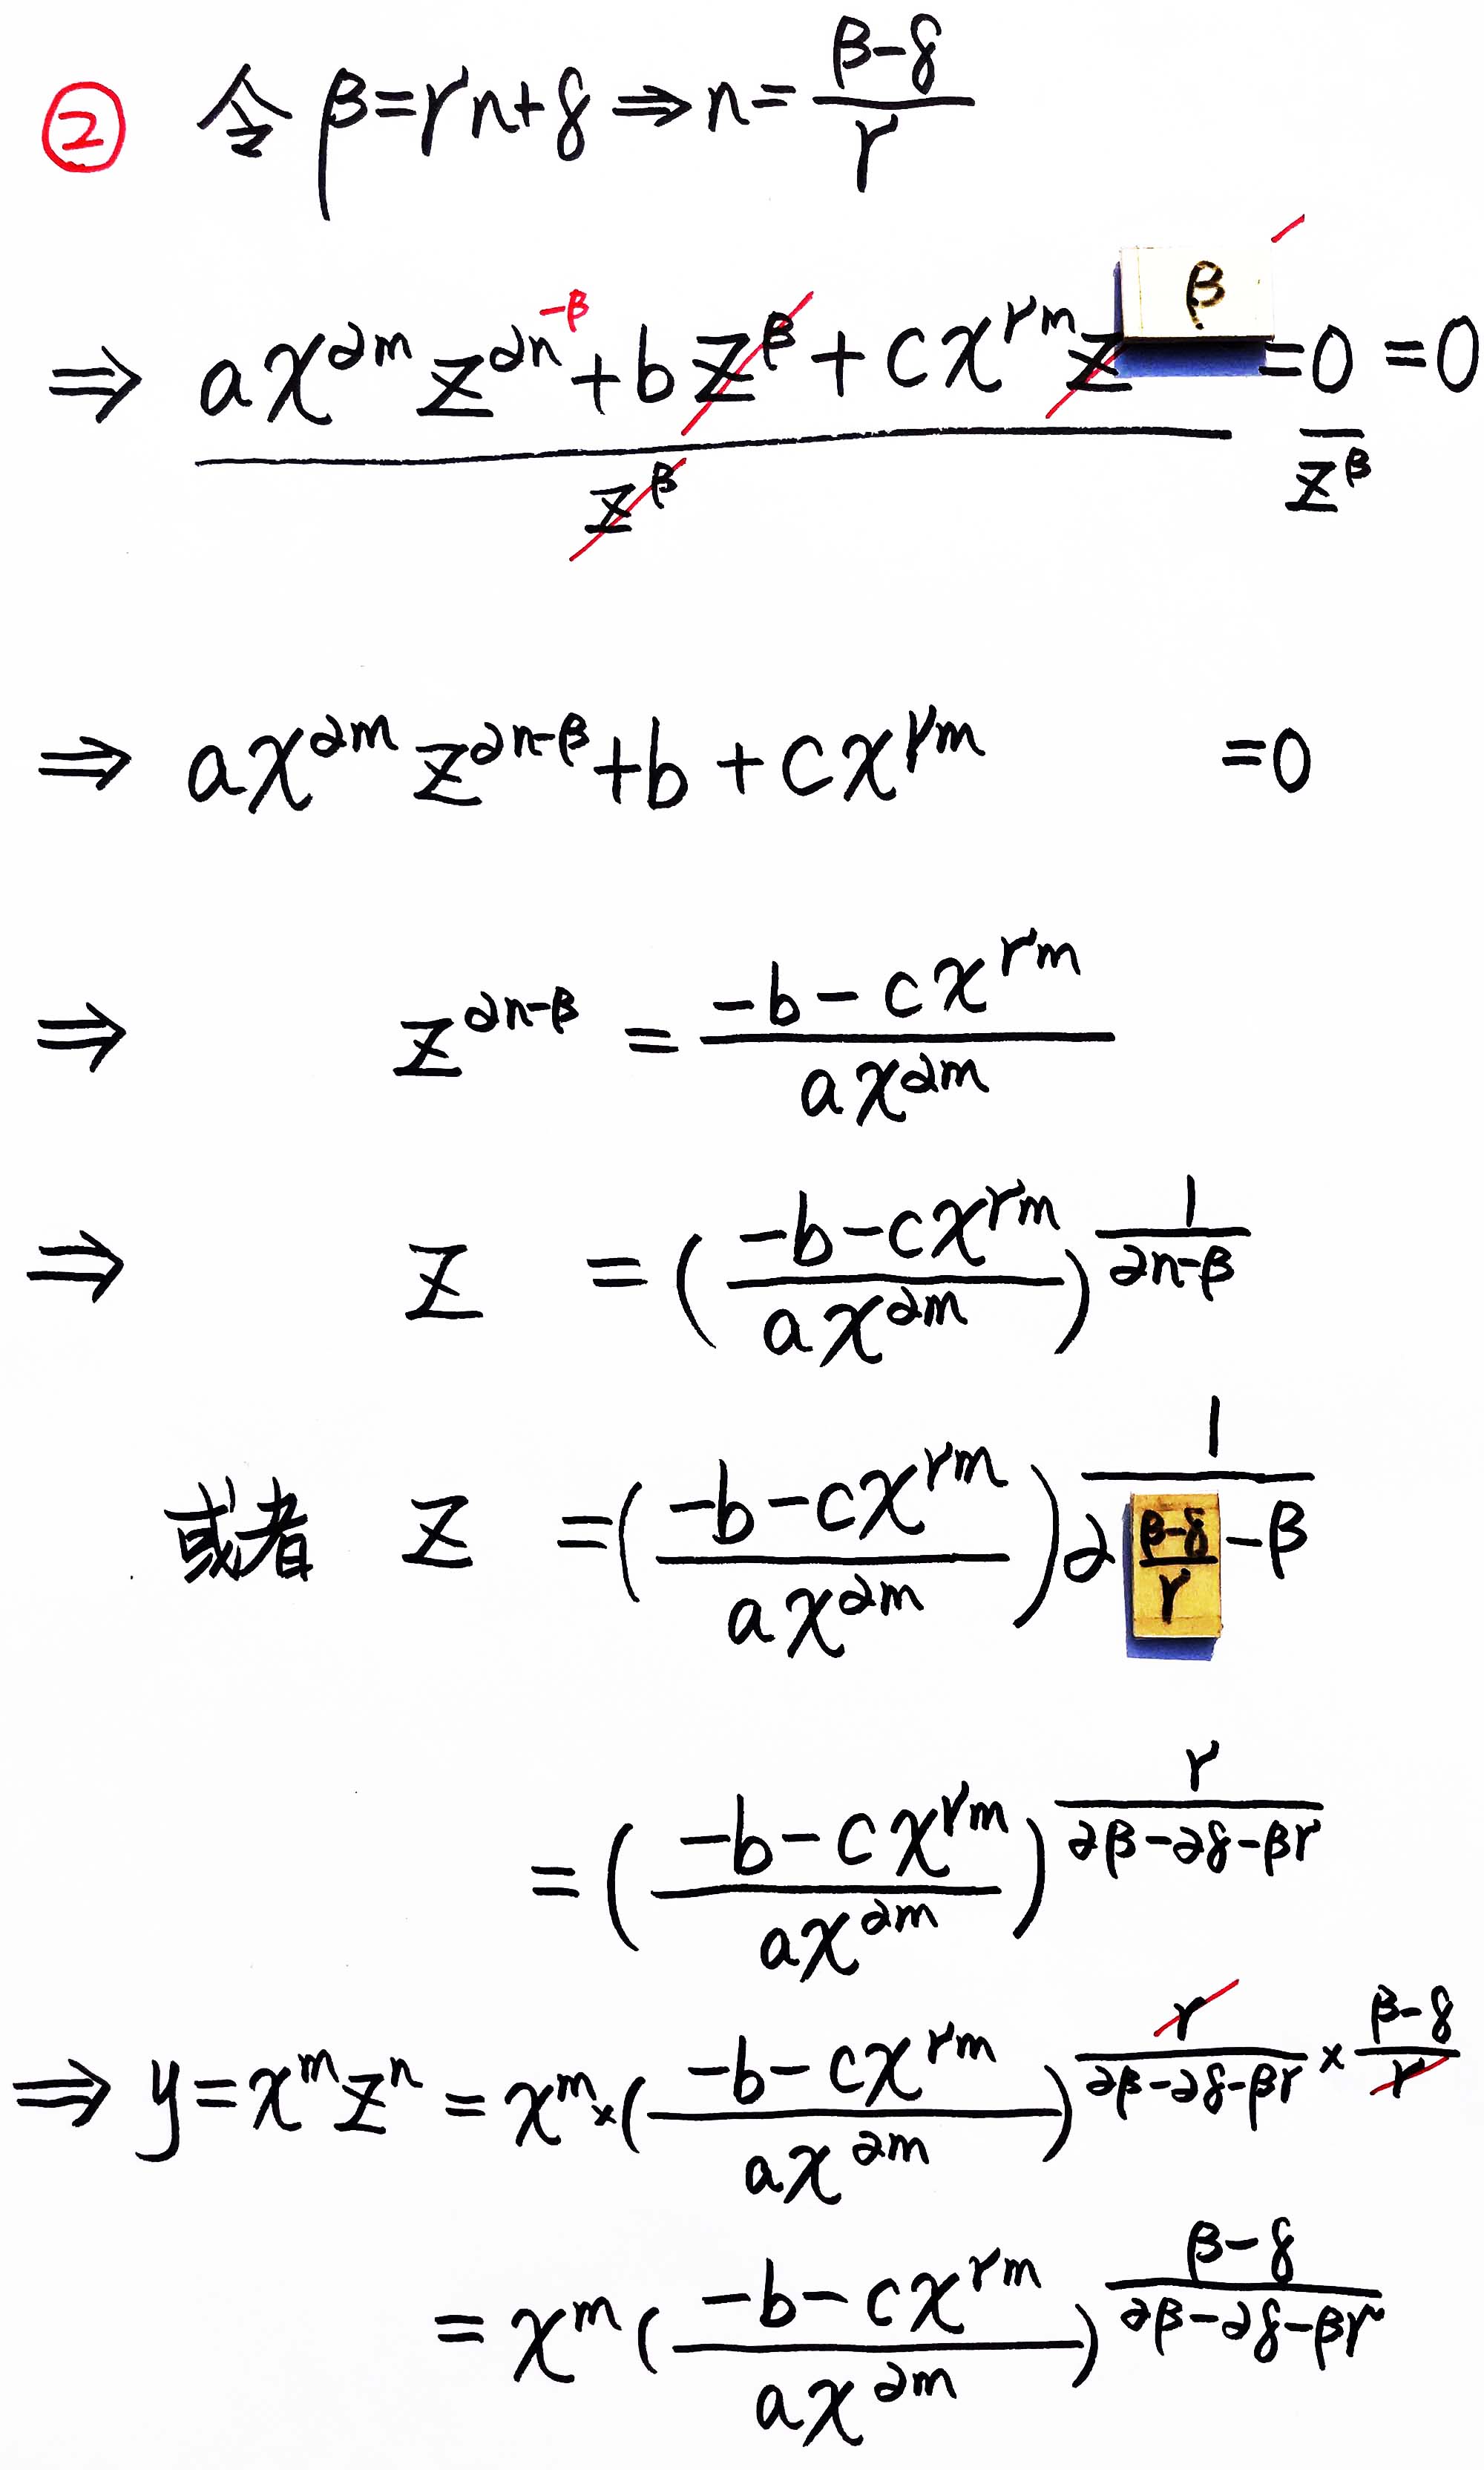 ② 令 β=γn+δ ⇒ n=(β-δ)/γ
⇒ (ax^{∂m} z^{∂n-β} + bz^β + cx^{γm} z^β)/z^β = 0/z^β = 0
⇒ ax^{∂m} z^{∂n-β} + b + cx^{γm} = 0
⇒ z^{∂n-β} = (-b-cx^{γm})/(ax^{∂m})
⇒ z = ((-b-cx^{γm})/(ax^{∂m}))^{1/(∂n-β)}
或者 z = ((-b-cx^{γm})/(ax^{∂m}))^{1/(∂(β-δ)/γ-β)}
= ((-b-cx^{γm})/(ax^{∂m}))^{γ/(∂β-∂δ-βγ)}
⇒ y=x^m z^n = x^m×((-b-cx^{γm})/(ax^{∂m}))^{γ/(∂β-∂δ-βγ)×(β-δ)/γ}
= x^m((-b-cx^{γm})/(ax^{∂m}))^{(β-δ)/(∂β-∂δ-βγ)}